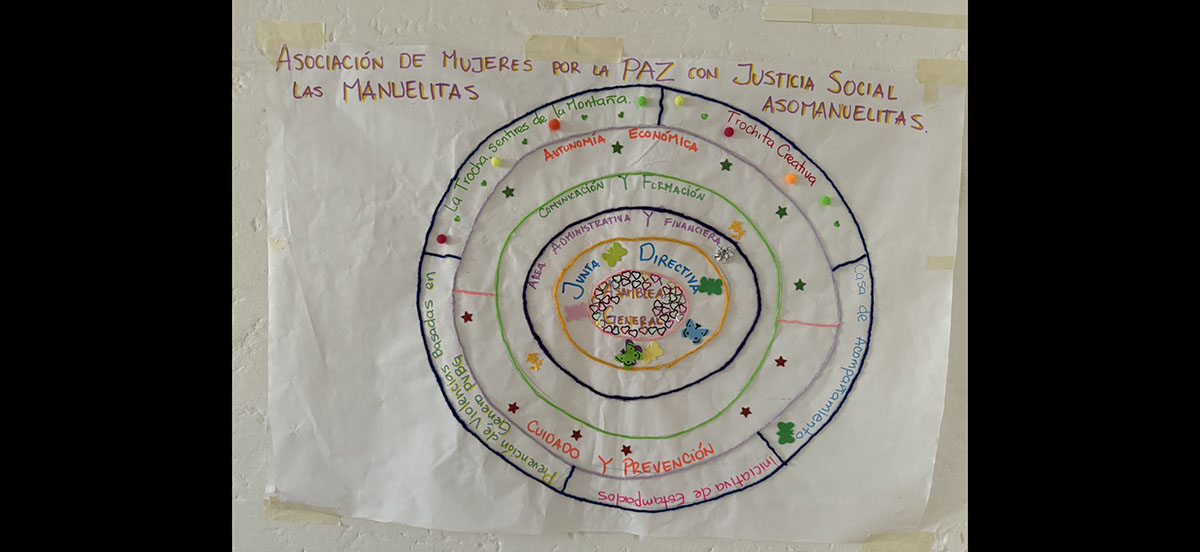 ASOCIACIÓN DE MUJERES POR LA PAZ CON JUSTICIA SOCIAL
LAS MANUELITAS
ASOMANUELITAS.
La Trocha, sentires de la Montaña.
Trochita Creativa
AUTONOMÍA ECONÓMICA
COMUNICACIÓN Y FORMACIÓN
ÁREA ADMINISTRATIVA Y FINANCIERA
JUNTA DIRECTIVA
ASAMBLEA
GENERAL
Casa de Acompañamiento
Prevención de Violencias Basadas en
Genero PVBG
CUIDADO Y PREVENCIÓN
Iniciativa de Estampados